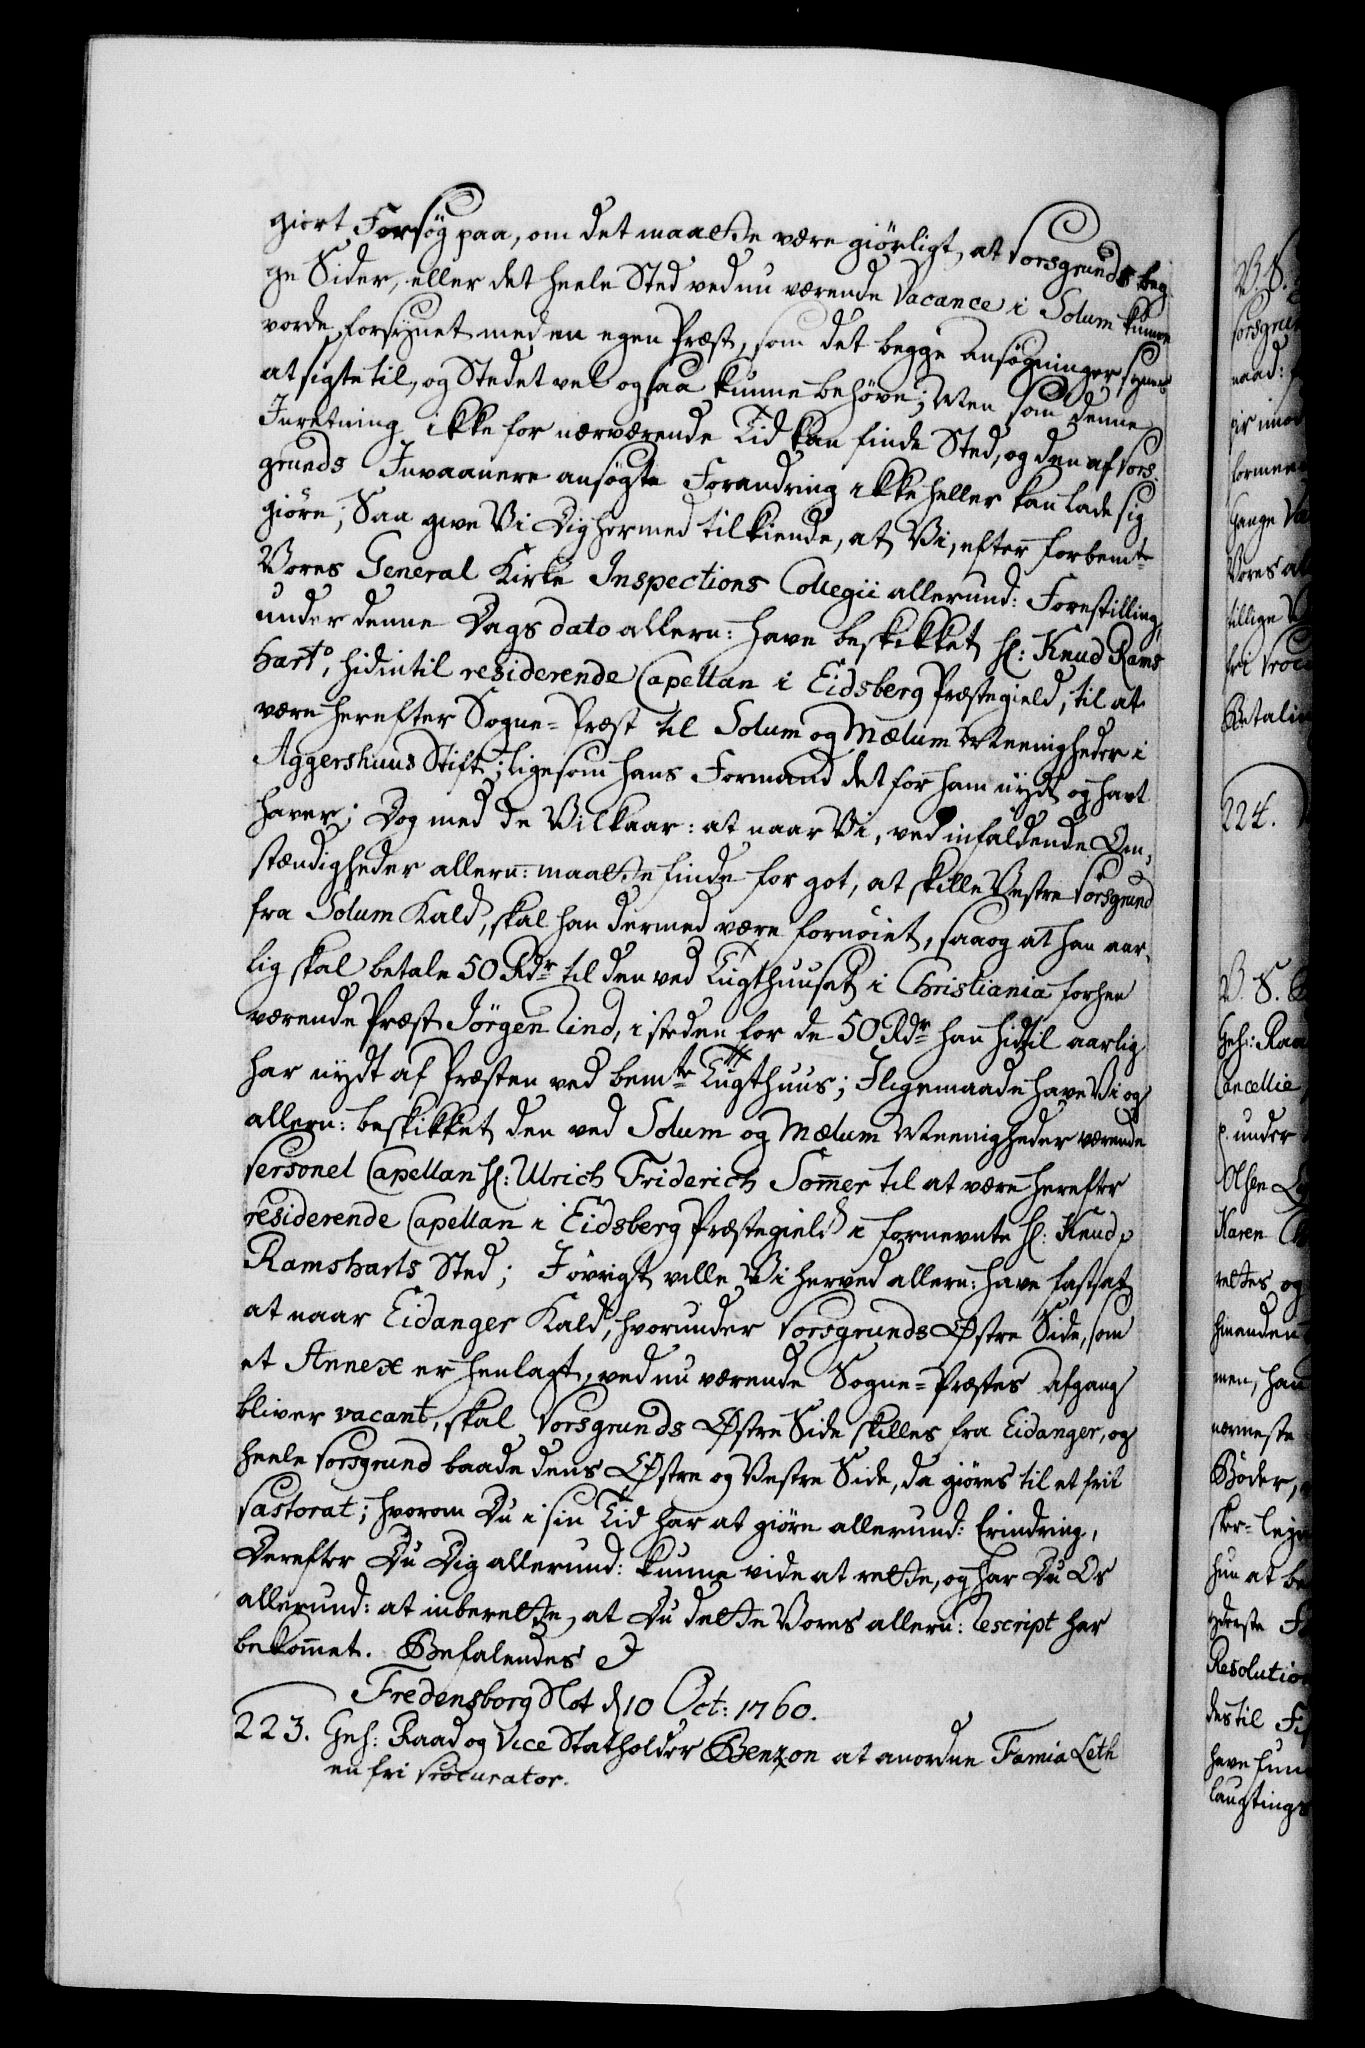 giort Forsøg paa, om det maatte være giørligt, at Porsgrunds beg-
ge Sider, eller det heele Sted ved nu værende Vacance i Solum kunne
vorde forsÿnet med en egen Præst, som det begge Ansøgninger sÿnes
at sigte til, og Stedet vel ogsaa kunne behøve; Men som denne
Inretning ikke for nærværende Tid kan finde Sted, og den af Pors-
grunds Invaanere ansøgte Forandring ikke heller kan lade sig
giøre; Saa give Vi Dig hermed tilkiende, at Vi, efter forbemte
Vores General Kirke Inspections Collegii allerund: Forestilling,
under denne Dags dato allern: have beskikket Hr: Knud Rams
hart, hidindtil residerende Capellan i Eidsberg Præstegield, til at
være herefter Sogne-Præst til Solum og Mælum Meenigheder i
Aggershuus Stift; ligesom hans Formand det for ham nÿdt og havt
haver; Dog med de Vilkaar: at naar Vi, ved infaldende Om-
stændigheder allern: maatte finde for got, at skille Vestre Porsgrund
fra Solum Kald, skal han dermed være fornøiet, saa og at han aar-
lig skal betale 50 Rdr til den ved Tugthuuset i Christiania forhen
værende Præst Jørgen Lind, i steden for de 50 Rdr han hidtil aarlig
har nÿdt af Præsten ved bemte Tugthuus; Iligemaade have Vi og
allern: beskikket den ved Solum og Mælum Meenigheder værende
Personel Capellan Hr: Ulrich Friderich Som̄er til at være herefter
residerende Capellan i Eidsberg Præstegield i fornevnte Hr: Knud
Ramsharts Sted; I øvrigt ville Vi herved allern: have fastsat,
at naar Eidanger Kald, hvorunder Porsgrunds Østre Side, som
et Annex er henlagt, ved nu værende Sogne-Præstes afgang
bliver vacant, skal Porsgrunds Østre Side skilles fra Eidanger, og
heele Porsgrund baade dens Østre og Vestre Side, da giøres til et frit
Pastorat; hvorom Du i sin Tid har at giøre allerund: Erindring,
Derefter Du Dig allerund: kunne vide at rette, og har Du Os
allerund: at inberette, at Du dette Vores allern: Rescript har
bekom̄et. Befalendes
Fredensborg Slot d 10 Oct: 1760.
223. Geh: Raad og Vice Statholder Benzon at anordne Famia Leth
en fri Procurator.
V. S.
Porsgrun
naad:
224.
V. S.
Geh: Ra
Cancellie
p. under
Olsen
Karen
rettes og
hinanden
men, han
nærmeste
Bøder,
hun at be
yderste
Resolution
des til
have
laugtings